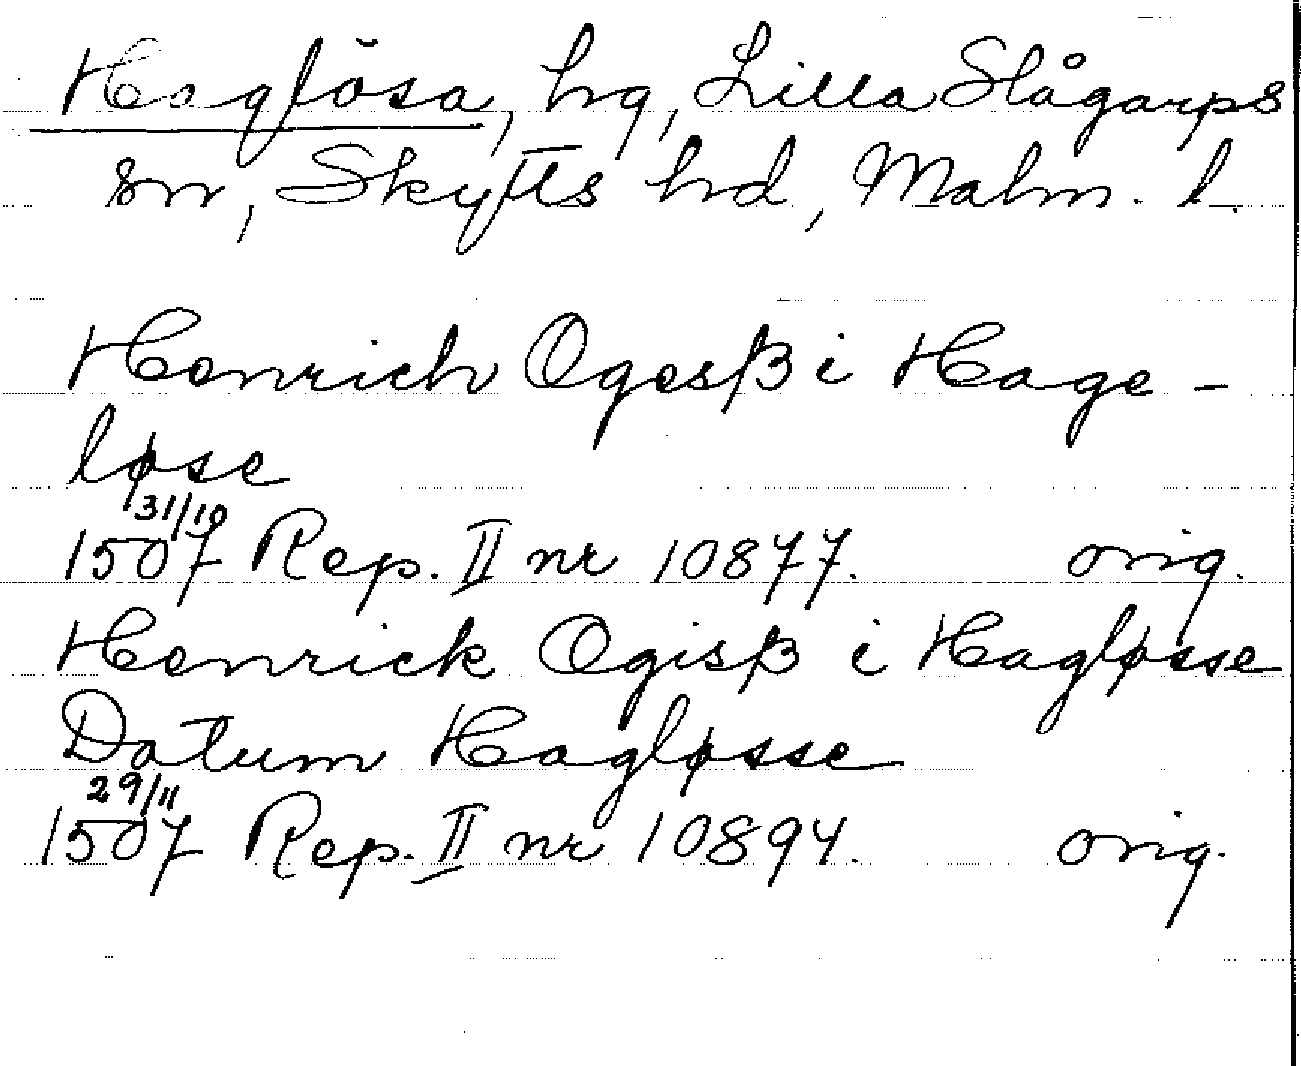 Haglösa, hg, Lilla Slågarps
sn, Skytts hd, Malm. l.
Henrich Ogesß i Hage-
løse
31/10
1507 Rep. II nr 10877. orig.
Henrick Ogisß i Hagløsse
Datum Hagløsse
29/11
1507 Rep. II nr 10894. orig.